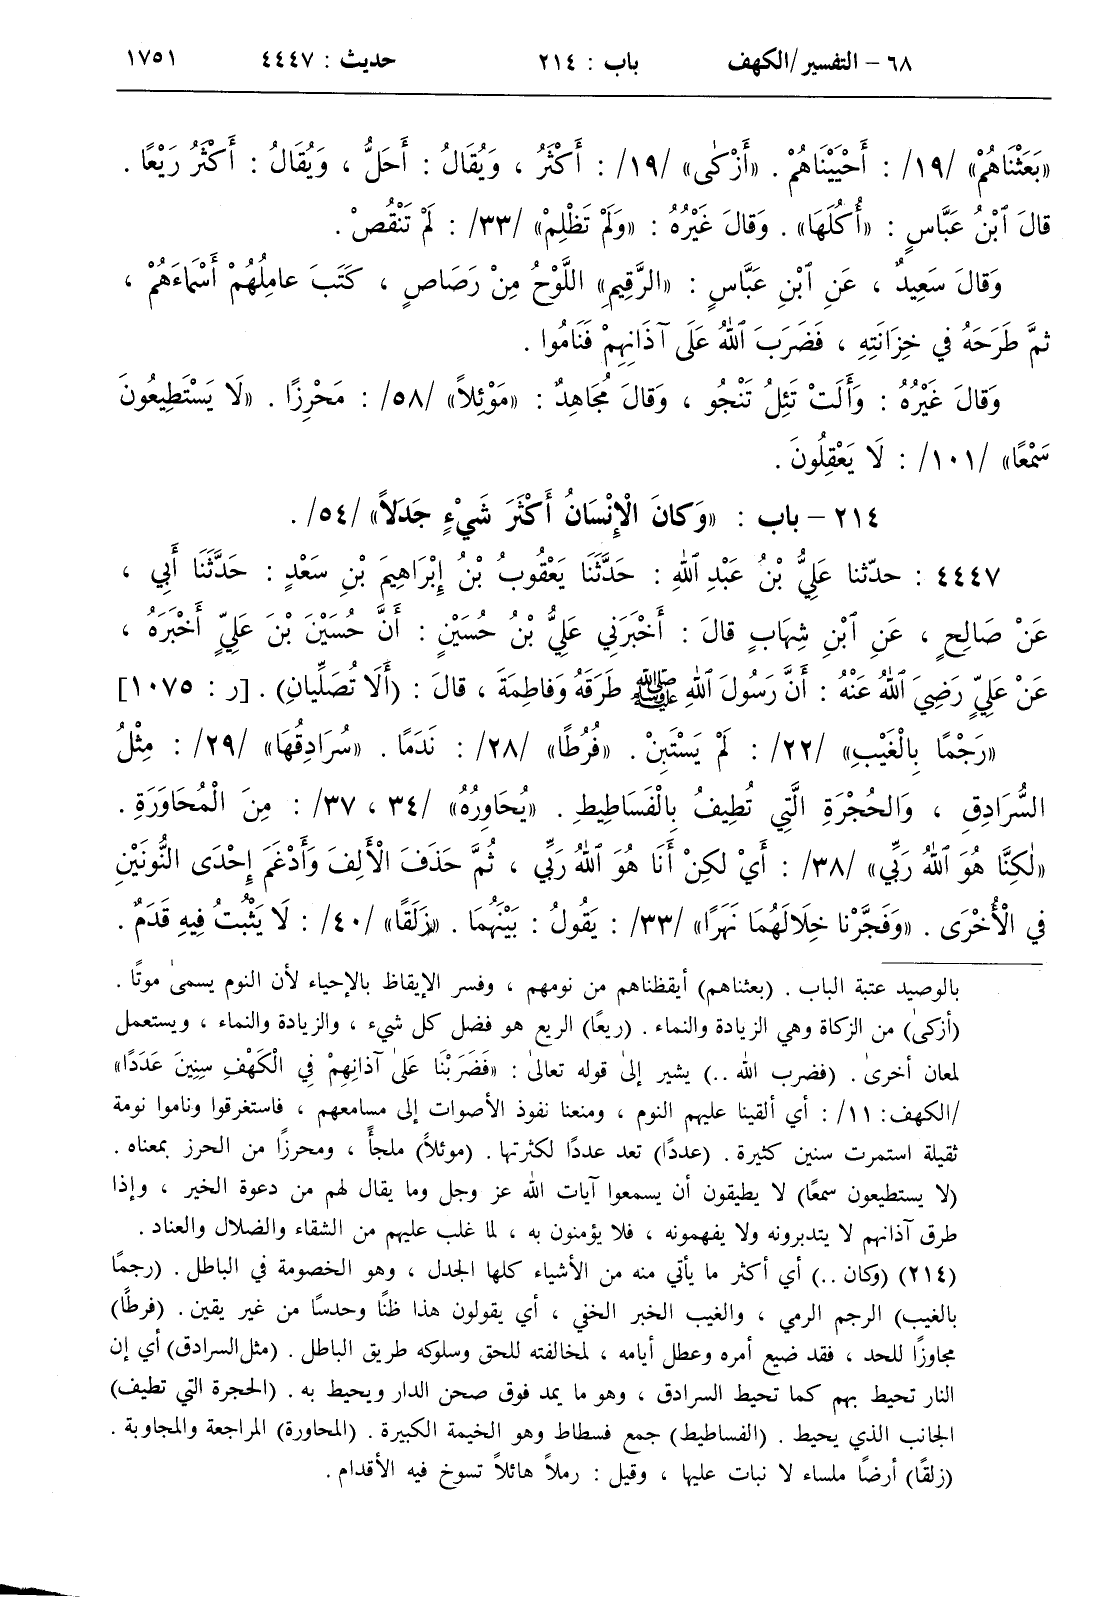 ٦٨ – التفسير/الكهف باب : ٢١٤ حديث : ٤٤٤٧ ١٧٥١
«بَعَثْنَاهُمْ» /١٩/ : أَحْيَيْنَاهُمْ . «أَزْكَى» /١٩/ : أَكْثَرُ ، وَيُقَالُ : أَحَلُّ ، وَيُقَالُ : أَكْثَرُ رَيْعًا .
قالَ ٱبْنُ عَبَّاسٍ : «أُكُلَهَا» . وَقالَ غَيْرُهُ : «وَلَمْ تَظْلِمْ» /٣٣/ : لَمْ تَنْقُصْ .
وَقالَ سَعِيدٌ ، عَنِ ٱبْنِ عَبَّاسٍ : «الرَّقِيمِ» اللَّوْحُ مِنْ رَصَاصٍ ، كَتَبَ عامِلُهُمْ أَسْمَاءَهُمْ ،
ثمَّ طَرَحَهُ في خِزَانَتِهِ ، فَضَرَبَ ٱللهُ عَلَى آذَانِهِمْ فَنَامُوا .
وَقالَ غَيْرُهُ : وَأَلَتْ تَئِلُ تَنْجُو ، وَقالَ مُجَاهِدٌ : «مَوْئِلاً» /٥٨/ : مَحْرِزًا . «لَا يَسْتَطِيعُونَ
سَمْعًا» /١٠١/ : لَا يَعْقِلُونَ .
٢١٤ – باب : «وَكانَ الْإِنْسَانُ أَكْثَرَ شَيْءٍ جَدَلاً» /٥٤/ .
٤٤٤٧ : حدّثنا عَلِيُّ بْنُ عَبْدِ ٱللهِ : حَدَّثَنَا يَعْقُوبُ بْنُ إِبْرَاهِيمَ بْنِ سَعْدٍ : حَدَّثَنَا أَبِي ،
عَنْ صَالِحٍ ، عَنِ ٱبْنِ شِهَابٍ قالَ : أَخْبَرَنِي عَلِيُّ بْنُ حُسَيْنٍ : أَنَّ حُسَيْنَ بْنَ عَلِيٍّ أَخْبَرَهُ ،
عَنْ عَلِيٍّ رَضِيَ ٱللهُ عَنْهُ : أَنَّ رَسُولَ ٱللهِ ﷺ طَرَقَهُ وَفاطِمَةَ ، قالَ : (أَلَا تُصَلِّيانِ) . [ر : ١٠٧٥]
«رَجْمًا بِالْغَيْبِ» /٢٢/ : لَمْ يَسْتَبِنْ . «فُرُطًا» /٢٨/ : نَدَمًا . «سُرَادِقُهَا» /٢٩/ : مِثْلُ
السُّرَادِقِ ، وَالحُجْرَةِ الَّتِي تُطِيفُ بِالْفَسَاطِيطِ . «يُحَاوِرُهُ» /٣٤ ، ٣٧/ : مِنَ الْمُحَاوَرَةِ .
«لٰكِنَّا هُوَ ٱللهُ رَبِّي» /٣٨/ : أَيْ لكِنْ أَنَا هُوَ ٱللهُ رَبِّي ، ثُمَّ حَذَفَ الْأَلِفَ وَأَدْغَمَ إِحْدَى النُّونَيْنِ
في الْأُخْرَى . «وَفَجَّرْنا خِلَالَهُمَا نَهَرًا» /٣٣/ : يَقُولُ : بَيْنَهُمَا . «زَلَقًا» /٤٠/ : لَا يَثْبُتُ فِيهِ قَدَمٌ .
بالوصيد عتبة الباب . (بعثناهم) أيقظناهم من نومهم ، وفسر الإيقاظ بالإحياء لأن النوم يسمىٰ موتًا .
(أزكىٰ) من الزكاة وهي الزيادة والنماء . (ريعًا) الريع هو فضل كل شيء ، والزيادة والنماء ، ويستعمل
لمعان أخرىٰ . (فضرب الله ..) يشير إلىٰ قوله تعالىٰ : «فَضَرَبْنَا عَلىٰ آذانِهِمْ فِي الْكَهْفِ سِنِينَ عَدَدًا»
/الكهف: ١١/ : أي ألقينا عليهم النوم ، ومنعنا نفوذ الأصوات إلى مسامعهم ، فاستغرقوا وناموا نومة
ثقيلة استمرت سنين كثيرة . (عددًا) تعد عددًا لكثرتها . (موئلاً) ملجأً ، ومحرزًا من الحرز بمعناه .
(لا يستطيعون سمعًا) لا يطيقون أن يسمعوا آيات الله عز وجل وما يقال لهم من دعوة الخير ، وإذا
طرق آذانهم لا يتدبرونه ولا يفهمونه ، فلا يؤمنون به ، لما غلب عليهم من الشقاء والضلال والعناد .
(٢١٤) (وكان ..) أي أكثر ما يأتي منه من الأشياء كلها الجدل ، وهو الخصومة في الباطل . (رجمًا
بالغيب) الرجم الرمي ، والغيب الخبر الخفي ، أي يقولون هذا ظنًا وحدسًا من غير يقين . (فرطًا)
مجاوزًا للحد ، فقد ضيع أمره وعطل أيامه ، لمخالفته للحق وسلوكه طريق الباطل . (مثل السرادق) أي إن
النار تحيط بهم كما تحيط السرادق ، وهو ما يمد فوق صحن الدار ويحيط به . (الحجرة التي تطيف)
الجانب الذي يحيط . (الفساطيط) جمع فسطاط وهو الخيمة الكبيرة . (المحاورة) المراجعة والمجاوبة .
(زلقًا) أرضًا ملساء لا نبات عليها ، وقيل : رملاً هائلاً تسوخ فيه الأقدام .